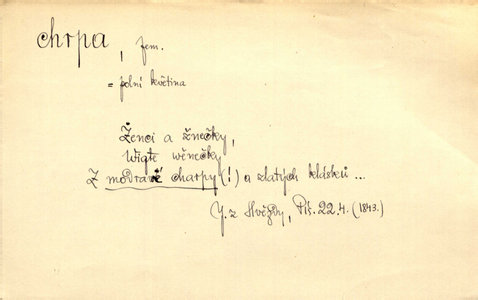 chrpa, fem.
= polní květina
Ženci a žnečky,
Wigte wěnečky
Z modravé charpy (!) a zlatých klásků ...
J. z Hvězdy, Pís. 22.4. (1843.)